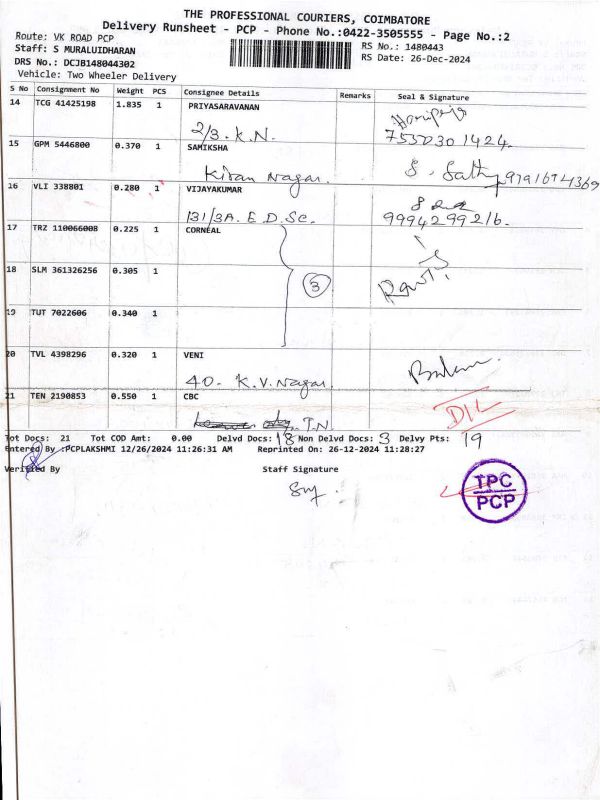 THE PROFESSIONAL COURIERS, COIMBATORE
Delivery Runsheet - PCP - Phone No.:0422-3505555 - Page No.:2
Route: VK ROAD PCP RS No.: 1480443
Staff: S MURALUIDHARAN RS Date: 26-Dec-2024
DRS No.: DCJB148044302
Vehicle: Two Wheeler Delivery
S No Consignment No Weight PCS Consignee Details Remarks Seal & Signature
14 TCG 41425198 1.835 1 PRIYASARAVANAN
2/3. K.N. 7550301424.
15 GPM 5446800 0.370 1 SAMIKSHA
Kiran Nagar. S. Sathy
16 VLI 338801 0.280 1 VIJAYAKUMAR
131/3A. E.D.Sc. 9994299216.
17 TRZ 110066008 0.225 1 CORNEAL
18 SLM 361326256 0.305 1 3
19 TUT 7022606 0.340 1
20 TVL 4398296 0.320 1 VENI
40. K.V. Nagar.
21 TEN 2190853 0.550 1 CBC
T.N. DIL
Tot Docs: 21 Tot COD Amt: 0.00 Delvd Docs: 18 Non Delvd Docs: 3 Delvy Pts: 19
Entered By :PCPLAKSHMI 12/26/2024 11:26:31 AM Reprinted On: 26-12-2024 11:28:27
Verified By Staff Signature
TPC
PCP